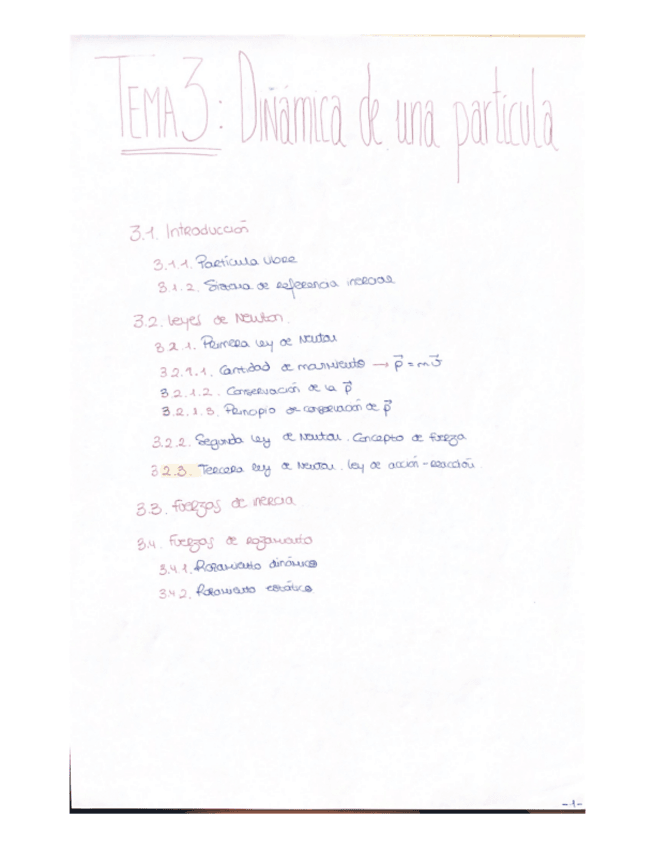 TEMA 3: Dinámica de una partícula
3.1. Introducción
3.1.1. Partícula libre
3.1.2. Sistema de referencia inercial
3.2. Leyes de Newton.
3.2.1. Primera ley de Newton
3.2.1.1. Cantidad de movimiento → p⃗ = m v⃗
3.2.1.2. Conservación de la p⃗
3.2.1.3. Principio de conservación de p⃗
3.2.2. Segunda ley de Newton. Concepto de fuerza
3.2.3. Tercera ley de Newton. Ley de acción-reacción.
3.3. Fuerzas de inercia
3.4. Fuerzas de rozamiento
3.4.1. Rozamiento dinámico
3.4.2. Rozamiento estático
-1-